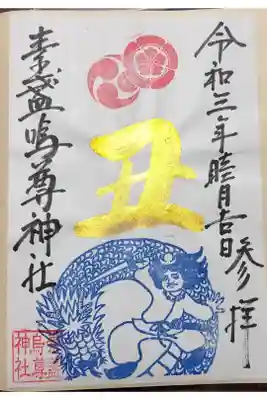 令和三年睦月吉日参拝
丑
素盞嗚尊神社
素盞
嗚尊
神社